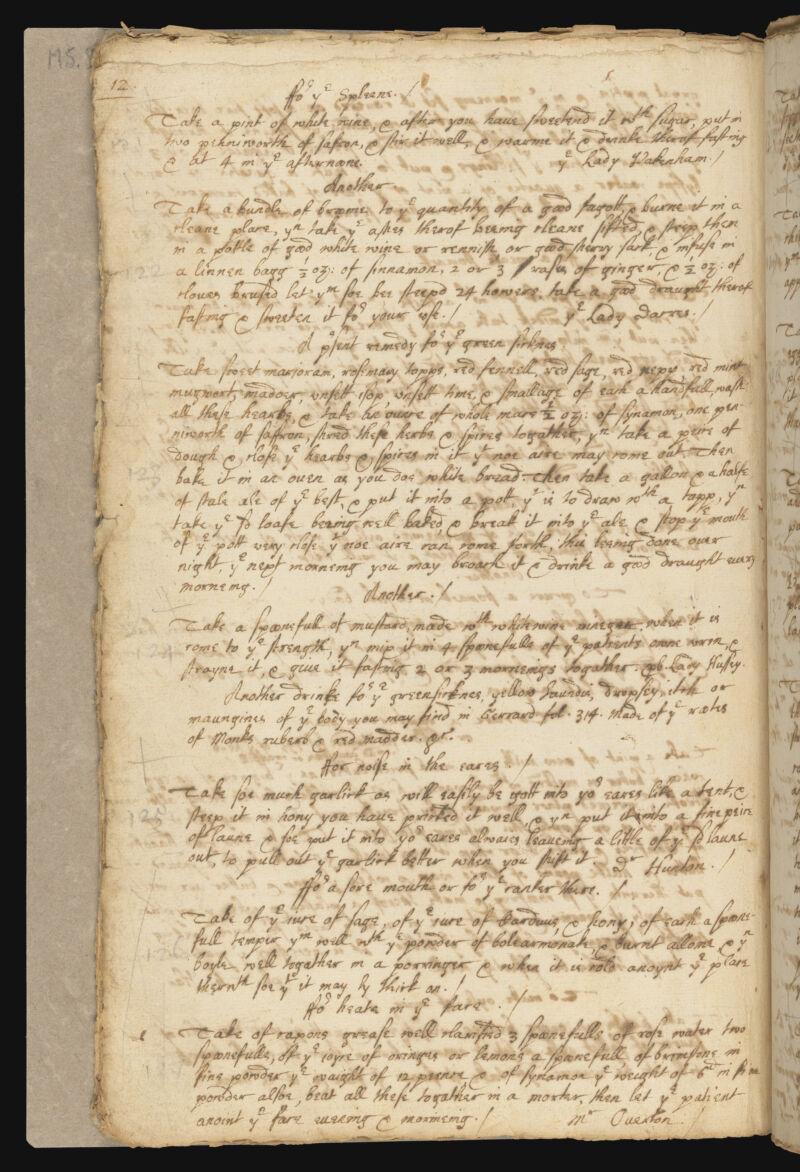 MS.
12
ffor ye Spleene. /
Take a pint of white wine, & after you have sweetend it wth sugar, put in
two peniworth of safron, & stir it well, & warme it & drinke therof fasting
& at 4 in ye afternoone. ye Lady Pakenham. /
Another.
Take a bundle of broome to ye quantity of a good fagott & burne it in a
cleane place, yn take ye ashes therof beeing cleane sifted, & steep them
in a pottle of good white wine or rennish or good sherry sack, & infuse in
a linnen bagg ½ oz: of sinnamon, 2 or 3 rases of ginger, & ½ oz: of
cloves brused let yn soe bee steepd 24 howers, take a good draught therof
fasting & sweeten it for your use. / ye Lady Dacres. /
A psent remedy for ye green sicknes
Take sweet marioram, rosemary topps, red fennell, red sage, red nepp red mint
mugwort, madder, unsett isop unsett time, & smallage of each a handfull, wash
all these hearbs, & take an ounce of whole mace ½ oz: of synamon, one pen-
niworth of saffron, shred these herbs & spices togather, yn take a peice of
dough & close ye hearbs & spices in it yt noe aire may come out. Then
bake it in an oven as you doe white bread. then take a gallon & a halfe
of stale ale of ye best, & put it into a pott, yt is to draw wth a tapp, yn
take ye sd loafe beeing well baked, & break it into ye ale & stop ye mouth
of ye pott very close yt noe aire can come forth, this beeing done over
night, ye next morneing you may broach it & drinke a good draught every
morneing. /
Another. /
Take a spoonefull of mustard, made wth whitewine vineger, when it is
come to ye strength, yn mix it in 4 spoonefulls of ye patients owne urin, &
strayne it, & give it fasting 2 or 3 morneings togather. Lady Hussey.
Another drinke for ye greensicknes, yellow Jaundis, dropsey, itch or
maungines of ye body you may find in Gerrard fol. 314. Made of ye roots
of Monks ruberb & red madder. &c.
ffor noise in the eares. /
Take soe much garlick as will easily be gott into yor eares like a tent, &
steep it in hony you have pricked it well, & yn put it into a fine peice
of laune & soe put it into yor eares alwaies leaveing a little of ye sd laune
out, to pull out ye garlick better when you shift it. Dr Hunton. /
ffor a sore mouth or for ye canker there. /
Take of ye iuce of sage, of ye iuce of & hony, of each a spoone-
full temper ym well wth ye powder of bolearmonak, & burnt allome & yn
boyle well togather in a porringer & when it is cold anoynt ye place
therwth soe yt it may ly thick on. /
ffor heate in ye face. /
Take of capons grease well clarified 3 spoonefulls of rose water two
spoonefulls, of ye ioyce of oringes or lemons a spoonefull of brimstone in
fine powder ye waight of 12 peence & of synamon ye weight of 6d in fine
powder alsoe, beat all these togather in a morter, then let ye patient
anoint ye face evening & morneing. / Mr Overton. /